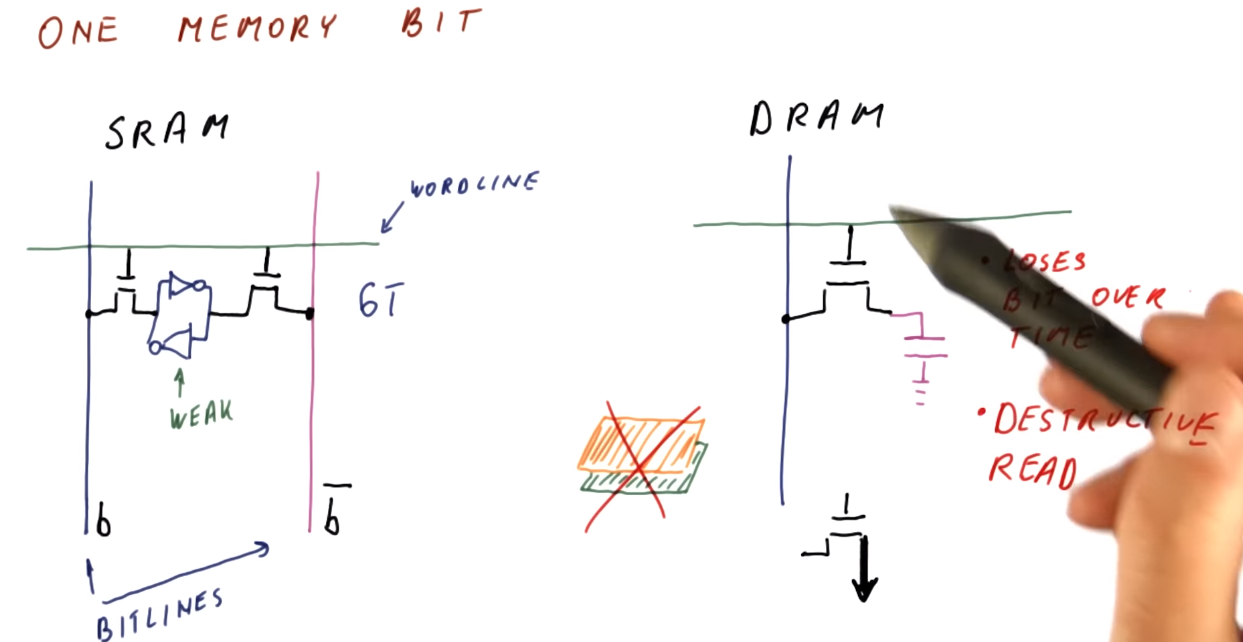 ONE MEMORY BIT
SRAM
DRAM
WORDLINE
6T
WEAK
b
b̅
BITLINES
• LOSES
BIT OVER
TIME
• DESTRUCTIVE
READ